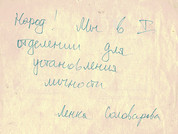 Народ! Мы в I
отделении для
установления
личности
Ленка Соловарова